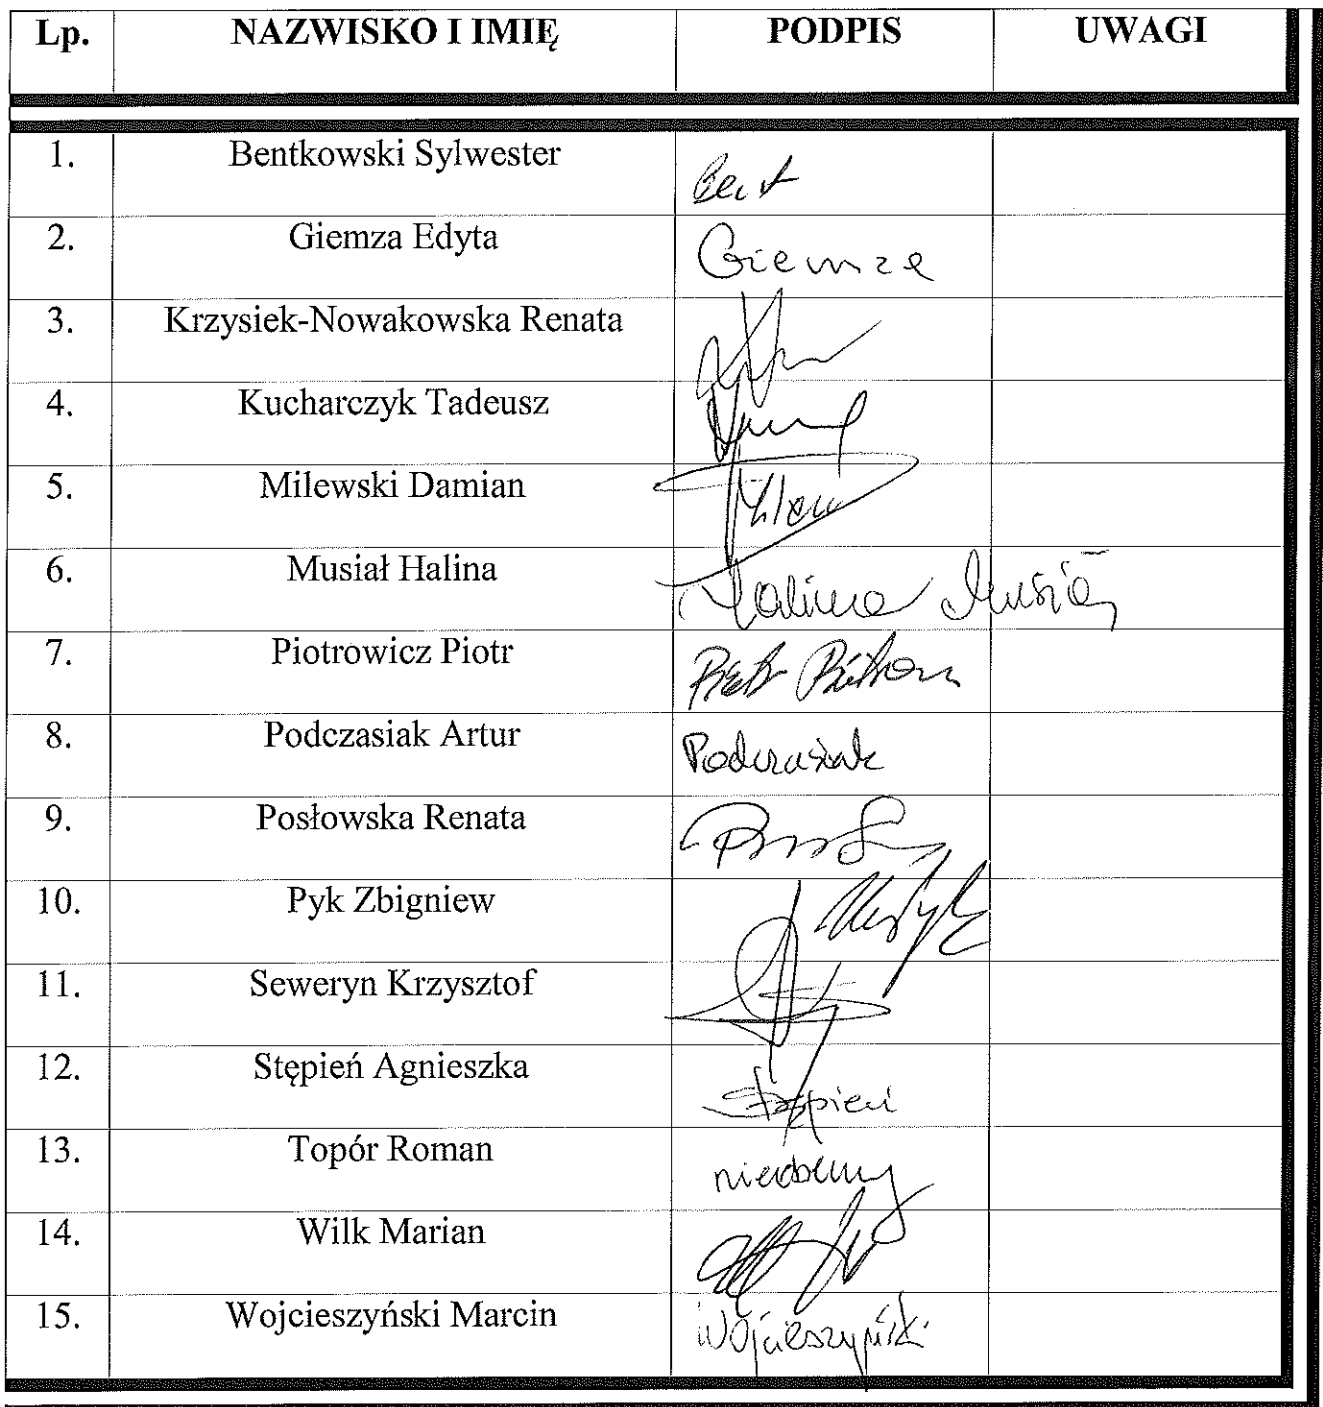 Lp. NAZWISKO I IMIĘ PODPIS UWAGI
1. Bentkowski Sylwester
2. Giemza Edyta Giemza
3. Krzysiek-Nowakowska Renata
4. Kucharczyk Tadeusz
5. Milewski Damian
6. Musiał Halina Halina Musiał
7. Piotrowicz Piotr Piotr
8. Podczasiak Artur Podczasiak
9. Posłowska Renata
10. Pyk Zbigniew
11. Seweryn Krzysztof
12. Stępień Agnieszka Stępień
13. Topór Roman nieobecny
14. Wilk Marian
15. Wojcieszyński Marcin Wojcieszyński